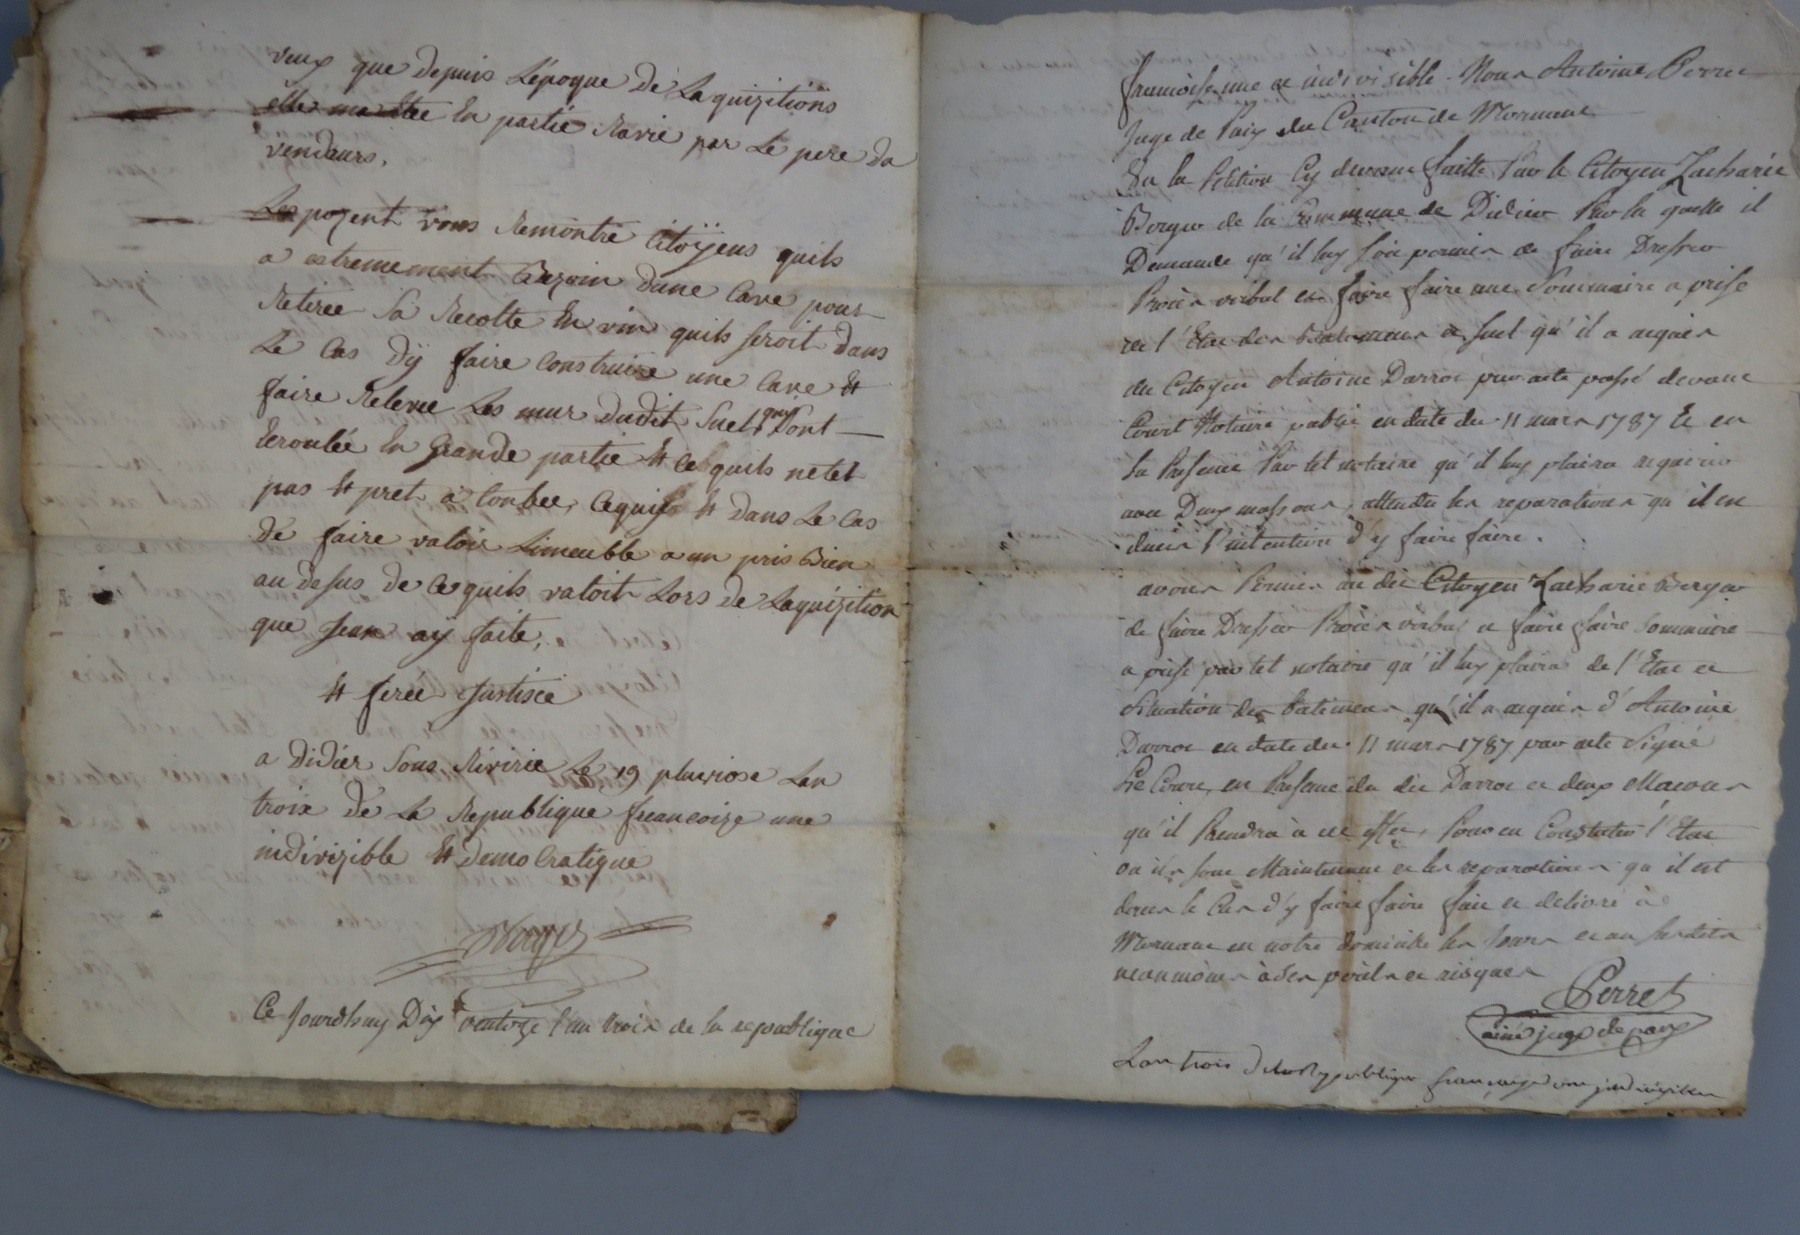 veux que depuis Lépoque de Laquizitions
elle ma ettee En partie Ravie par Le pere da
vendeurs.
Lespozent vous Remontre Citoÿens quils
a extremement Bezoin dune Cave pour
Retiree Sa Recolte En vin quils seroit dans
Le Cas dÿ faire construire une Cave Et
faire Releve Les mur dudit Suel quy Sont
Ecroulée En Grande partie Et ce quils netet
pas Et pret a tonbee, cequis Et dans Le Cas
de faire valoir Limeuble a un pris Bien
au desus de ce quils valoit Lors de Laquizition
que Jean aÿ faite,
Et feree Justisce
a Didier Sous Rivirie Le 19 pluviose Lan
troix de La Republique francoize une
indivizible Et Democratique
Ce Jourdhuy Dix ventoze l'an trois de la republique
francoise une et indivisible. Nous Antoine Perret
Juge de Paix du Canton de Mornant
Vu la Petition Cy devant faitte Par le Citoyen Zacharie
Berger de la Commune de Didier Par la quelle il
Demande qu'il luy soit permis de faire Dresser
Procès verbal et faire faire une Sommaire a prise
de l'Etat des Batiments et Suel qu'il a acquis
du Citoyen Antoine Darroc par acte passé devant
Court Notaire public en date du 11 mars 1787 Et en
Sa Presence Par tel notaire qu'il luy plaira requerir
avec Deux massons, attendu les reparations qu'il en
dans l'intention d'y faire faire.
avons Permis au dit Citoyen Zacharie Berger
de faire Dresser Procès verbal et faire faire Sommaire
a prise par tel notaire qu'il luy plaira de l'Etat et
Situation des Batiments qu'il a acquis d'Antoine
Darroc en date du 11 mars 1787 par acte Signé
Le Court, en Presence du dit Darroc et deux Macons
qu'il Prendra à cet effet, Pour en Constater l'Etat
ou ils sont Maintenant et les reparations qu'il est
dans le Cas d'y faire faire fait et delivré à
Mornant en notre domicile les Jours et an susdits
neanmoins à ses perils et risques
Perret
ainé juge de paix
Lan trois de la Republique française une indivizible